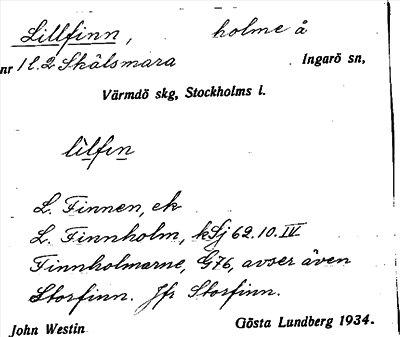 Lillfinn, holme å
nr 1 l. 2 Skälsmara Ingarö sn,
Värmdö skg, Stockholms l.
lilfin
L. Finnen, ek
L. Finnholm, kSj 62.10.IV
Finnholmarne, G76, avser även
Storfinn. Jfr Storfinn.
John Westin Gösta Lundberg 1934.